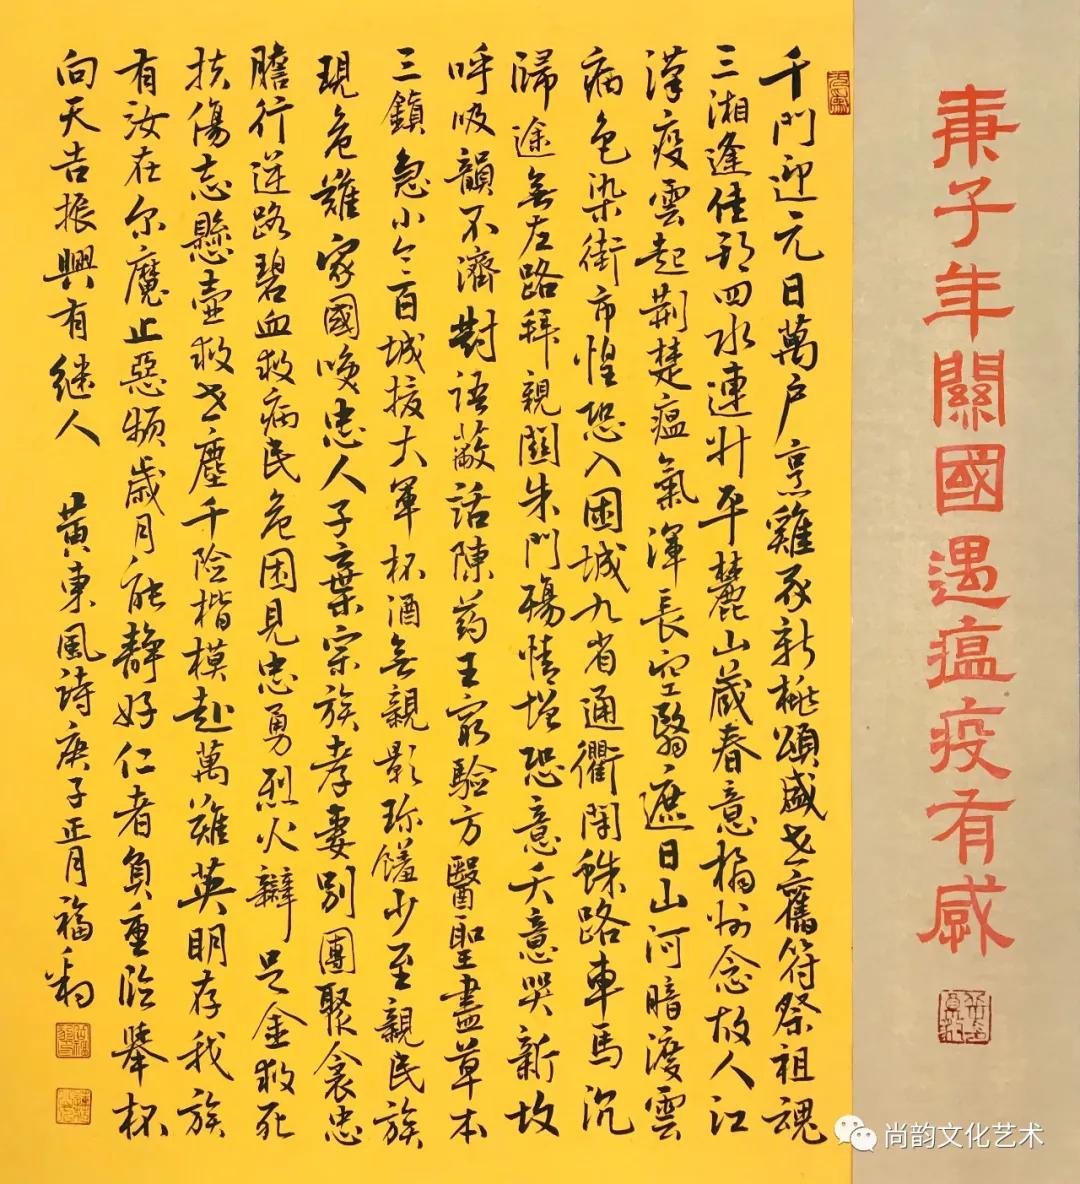 庚子年關國遇瘟疫有感
千門迎元日萬户烹雞豕新桃頌盛世舊符祭祖魂
三湘逢佳節四水連升平麓山藏春意橘州念故人江
漢疫雲起荆楚瘟氣渾長空翳遮日山河暗渡雲
病色染街市惶恐入困城九省通衢閉蛛路車馬沉
歸途無左路拜親關朱門殤情增恐意夭意哭新墳
呼吸韻不濟對語蔽話陳药王窮驗方醫聖盡草本
三鎮急小令百城援大軍杯酒無親影珍饈少至親民族
現危難家國喚忠人子棄宗族孝妻別團聚衾忠
膽行逆路碧血救病民危困見忠勇烈火辯足金救死
扶傷志懸壺救世塵千险楷模赴萬難英明存我族
有汝在尔魔止惡頻歲月能静好仁者負重临舉杯
向天告振興有继人 黄東風詩庚子正月福
尚韵文化艺术